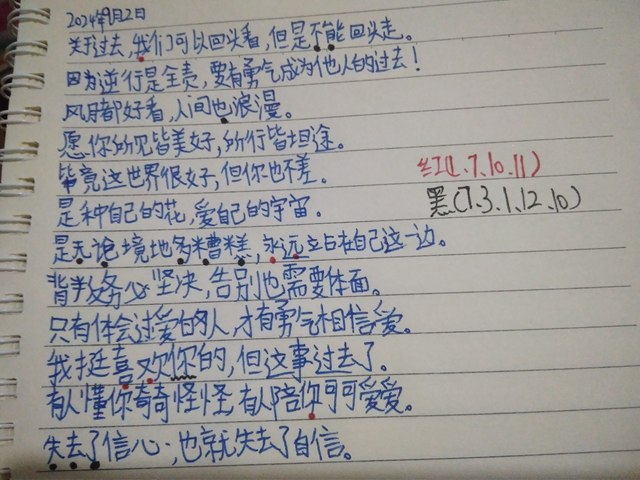 2024年9月2日
关于过去,我们可以回头看,但是不能回头走。
因为逆行是全责,要有勇气成为他人的过去!
风月都好看,人间也浪漫。
愿你所见皆美好,所行皆坦途。
毕竟这世界很好,但你也不差。
红(1.7.10.11)
是种自己的花,爱自己的宇宙。
黑(7.3.1.12.10)
是无论境地多糟糕,永远站在自己这一边。
背叛务必坚决,告别也需要体面。
只有体会过爱的人,才有勇气相信爱。
我挺喜欢你的,但这事过去了。
有人懂你奇奇怪怪,有人陪你可可爱爱。
失去了信心,也就失去了自信。